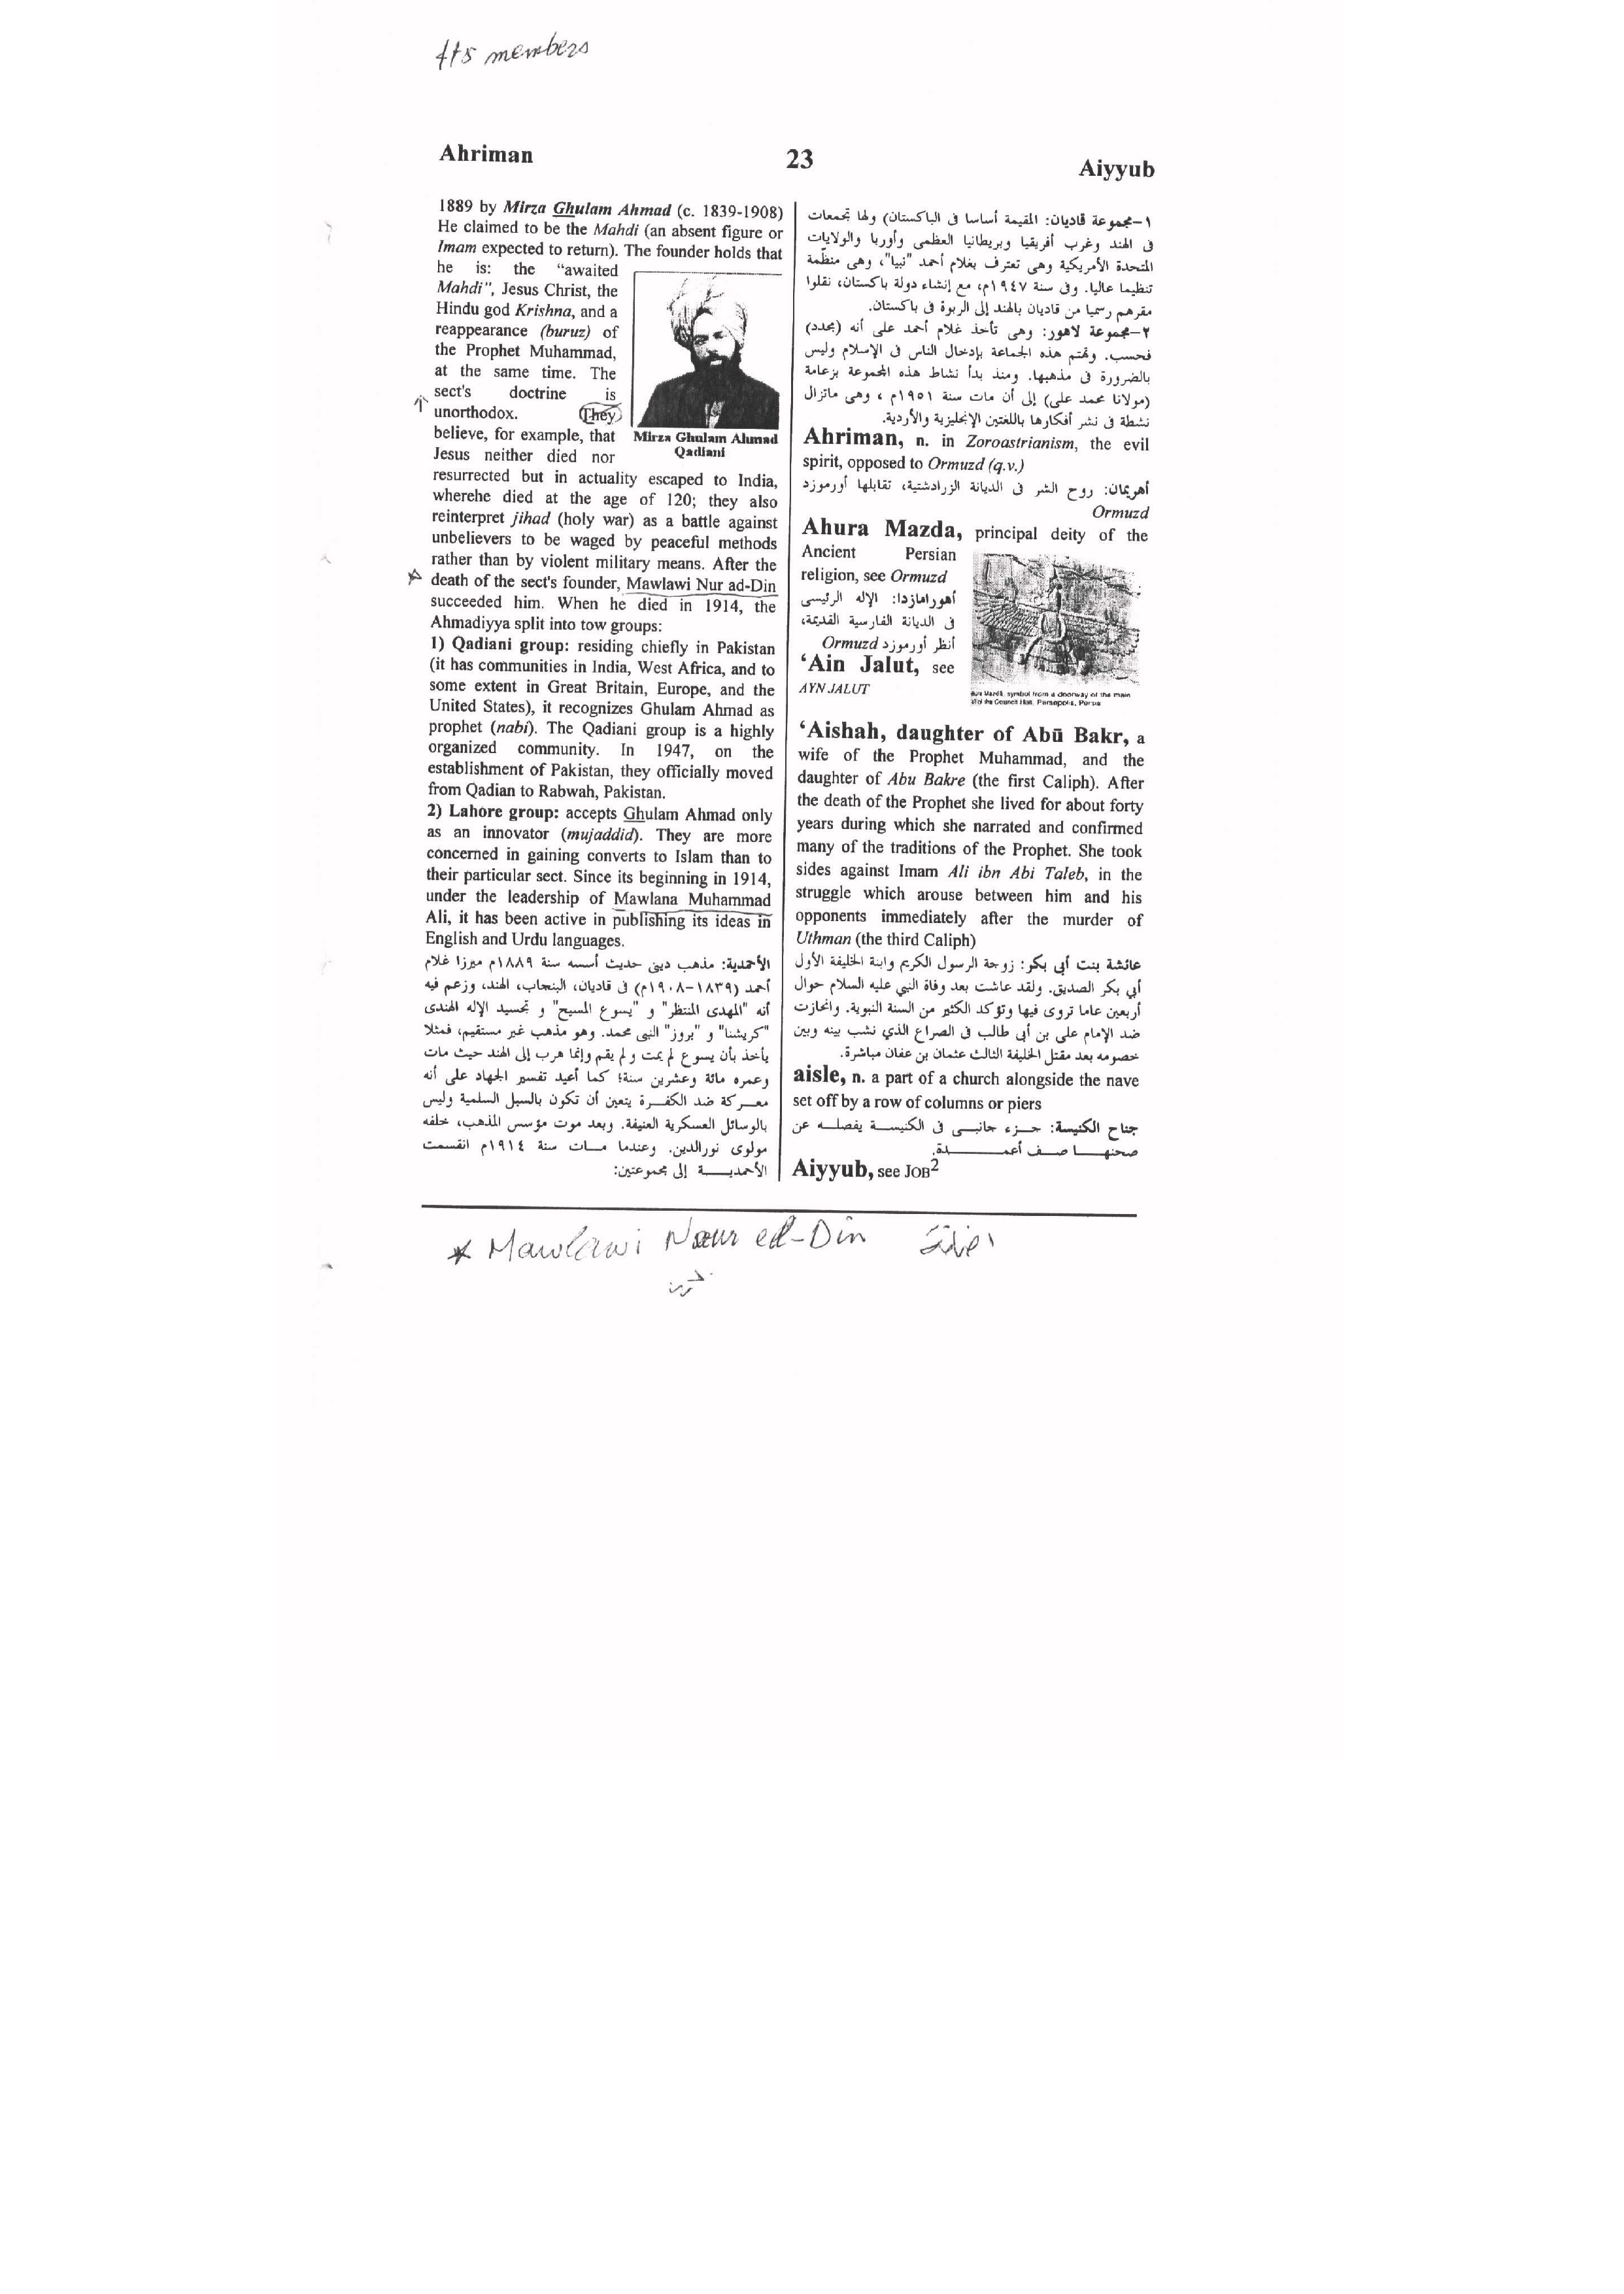 Its members
Ahriman
23
Aiyyub
1889 by Mirza Ghulam Ahmad (c. 1839-1908)
He claimed to be the Mahdi (an absent figure or
Imam expected to return). The founder holds that
he is: the “awaited
Mahdi", Jesus Christ, the
Hindu god Krishna, and a
reappearance (buruz) of
the Prophet Muhammad,
at the same time. The
sect's doctrine is
unorthodox. They
believe, for example, that
Jesus neither died nor
Mirza Ghulam Ahmad
Qadiani
resurrected but in actuality escaped to India,
wherehe died at the age of 120; they also
reinterpret jihad (holy war) as a battle against
unbelievers to be waged by peaceful methods
rather than by violent military means. After the
death of the sect's founder, Mawlawi Nur ad-Din
succeeded him. When he died in 1914, the
Ahmadiyya split into tow groups:
1) Qadiani group: residing chiefly in Pakistan
(it has communities in India, West Africa, and to
some extent in Great Britain, Europe, and the
United States), it recognizes Ghulam Ahmad as
prophet (nabi). The Qadiani group is a highly
organized community. In 1947, on the
establishment of Pakistan, they officially moved
from Qadian to Rabwah, Pakistan.
2) Lahore group: accepts Ghulam Ahmad only
as an innovator (mujaddid). They are more
concerned in gaining converts to Islam than to
their particular sect. Since its beginning in 1914,
under the leadership of Mawlana Muhammad
Ali, it has been active in publishing its ideas in
English and Urdu languages.
الأحمدية: مذهب ديني حديث أسسه سنة ١٨٨٩م ميرزا غلام
أحمد (١٨٣٩-١٩٠٨م) فى قاديان، البنجاب، الهند، وزعم فيه
أنه "المهدى المنتظر" و "يسوع المسيح" و تجسيد الإله الهندى
"كريشنا" و "بروز" النبى محمد. وهو مذهب غير مستقيم، فمثلا
يأخذ بأن يسوع لم يمت و لم يقم وإنما هرب إلى الهند حيث مات
وعمره مائة وعشرين سنة؛ كما أعيد تفسير الجهاد على أنه
معركة ضد الكفرة يتعين أن تكون بالسبل السلمية وليس
بالوسائل العسكرية العنيفة. وبعد موت مؤسس المذهب، خلفه
مولوى نورالدين. وعندما مات سنة ١٩١٤م انقسمت
الأحمدية إلى مجموعتين:
١-مجموعة قاديان: المقيمة أساسا فى الباكستان) ولها تجمعات
فى الهند وغرب أفريقيا وبريطانيا العظمى وأوربا والولايات
المتحدة الأمريكية وهى تعترف بغلام أحمد "نبيا"، وهى منظّمة
تنظيما عاليا. وفى سنة ١٩٤٧م، مع إنشاء دولة باكستان، نقلوا
مقرهم رسميا من قاديان بالهند إلى الربوة فى باكستان.
٢-مجموعة لاهور: وهى تأخذ غلام أحمد على أنه (مجدد)
فحسب. وتهتم هذه الجماعة بإدخال الناس فى الإسلام وليس
بالضرورة فى مذهبها. ومنذ بدأ نشاط هذه المجموعة بزعامة
(مولانا محمد على) إلى أن مات سنة ١٩٥١م ، وهى ماتزال
نشطة فى نشر أفكارها باللغتين الإنجليزية والأردية.
Ahriman, n. in Zoroastrianism, the evil
spirit, opposed to Ormuzd (q.v.)
أهريمان: روح الشر فى الديانة الزرادشتية، تقابلها أورموزد
Ormuzd
Ahura Mazda, principal deity of the
Ancient Persian
religion, see Ormuzd
أهورامازدا: الإله الرئيسى
فى الديانة الفارسية القديمة،
أنظر أورموزد Ormuzd
‘Ain Jalut, see
AYN JALUT
Mazda, symbol from a doorway of the main
of the Council Hall, Persepolis, Persia
‘Aishah, daughter of Abū Bakr, a
wife of the Prophet Muhammad, and the
daughter of Abu Bakre (the first Caliph). After
the death of the Prophet she lived for about forty
years during which she narrated and confirmed
many of the traditions of the Prophet. She took
sides against Imam Ali ibn Abi Taleb, in the
struggle which arouse between him and his
opponents immediately after the murder of
Uthman (the third Caliph)
عائشة بنت أبي بكر: زوجة الرسول الكريم وابنة الخليفة الأول
أبي بكر الصديق. ولقد عاشت بعد وفاة النبي عليه السلام حوال
أربعين عاما تروى فيها وتؤكد الكثير من السنة النبوية. وانحازت
ضد الإمام على بن أبى طالب فى الصراع الذي نشب بينه وبين
خصومه بعد مقتل الخليفة الثالث عثمان بن عفان مباشرة.
aisle, n. a part of a church alongside the nave
set off by a row of columns or piers
جناح الكنيسة: جزء جانبى فى الكنيسة يفصله عن
صحنها صف أعمدة.
Aiyyub, see JOB2
* Mawlawi Nour ed-Din